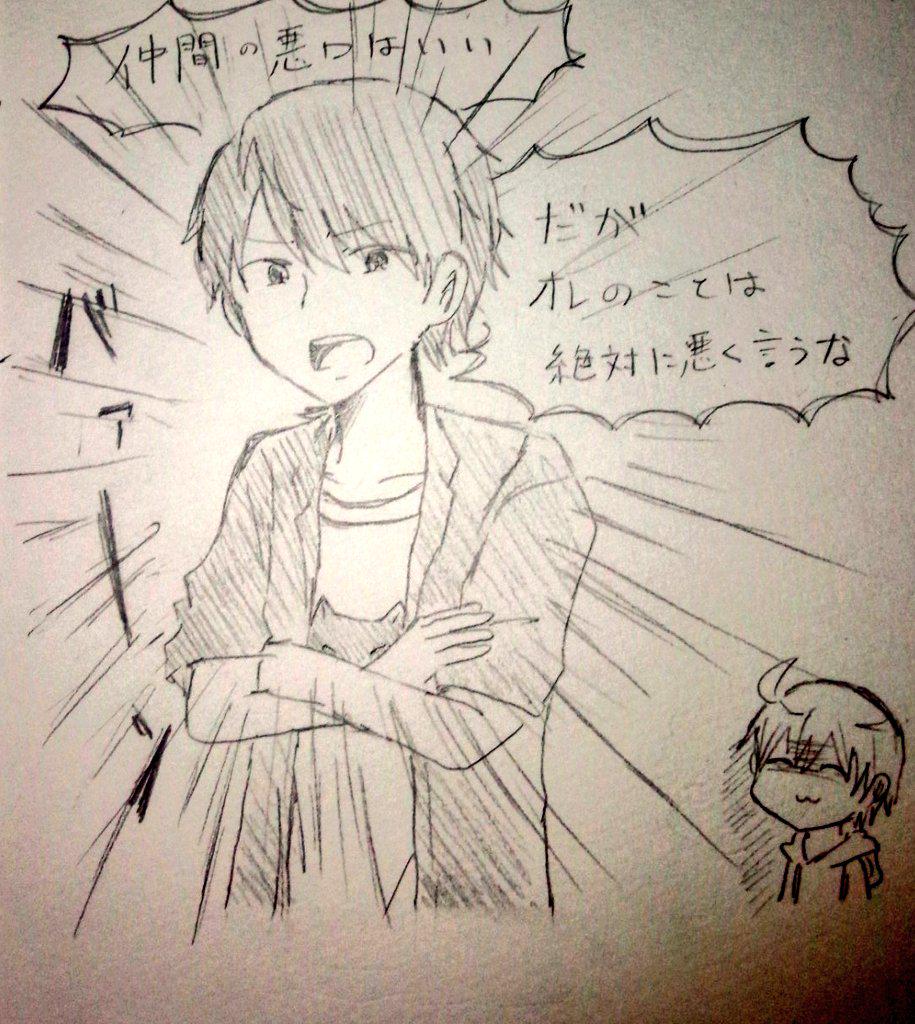 仲間の悪口はいい
だが
オレのことは
絶対に悪く言うな
バァーン